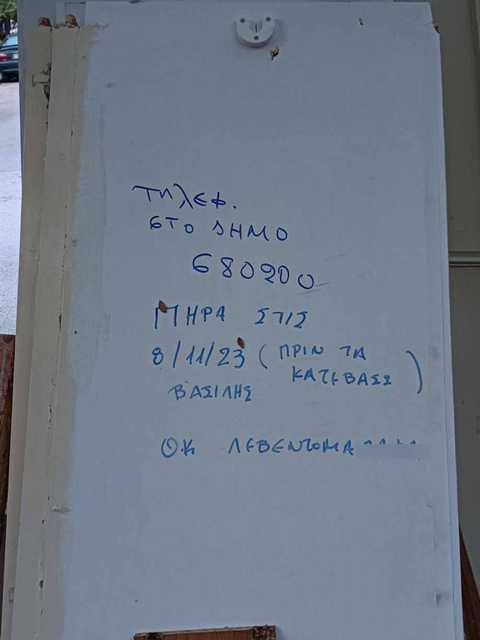 ΤΗΛΕΦ.
ΣΤΟ ΔΗΜΟ
680200
ΠΗΡΑ ΣΤΙΣ
8/11/23 (ΠΡΙΝ ΤΑ
ΚΑΤΕΒΑΣΩ)
ΒΑΣΙΛΗΣ
ΟΚ ΛΕΒΕΝΤΟΜΑ